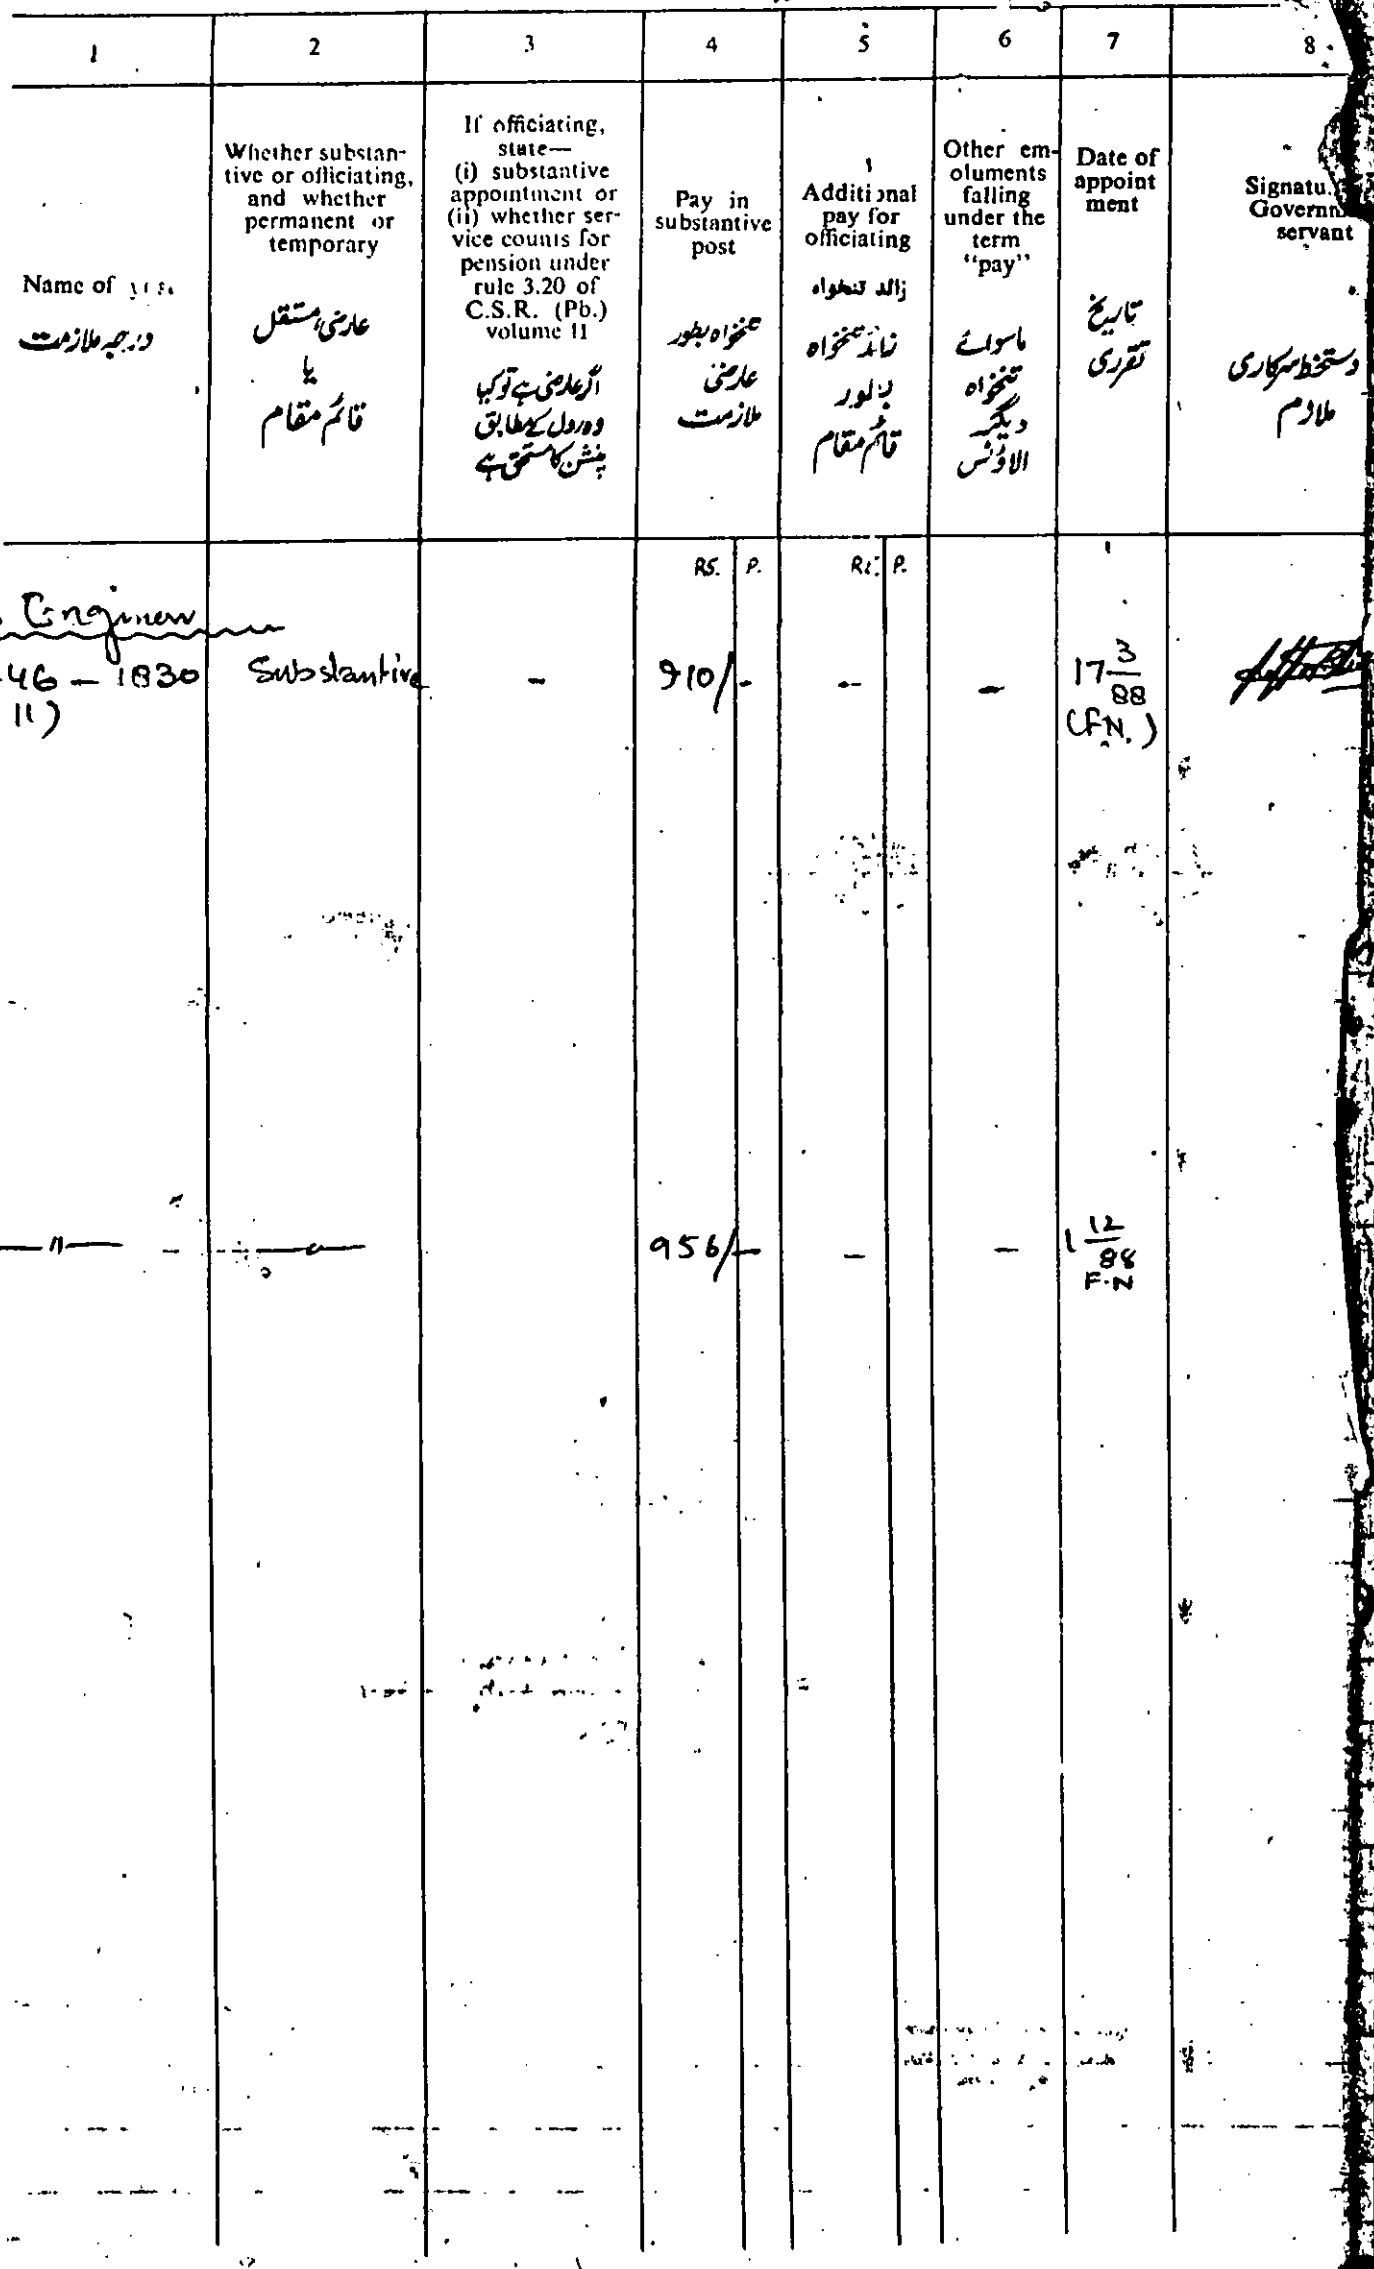 1 2 3 4 5 6 7 8
Name of
درجہ ملازمت
Whether substan-
tive or officiating,
and whether
permanent or
temporary
عارضی، مستقل
یا
قائم مقام
If officiating,
state—
(i) substantive
appointment or
(ii) whether ser-
vice counts for
pension under
rule 3.20 of
C.S.R. (Pb.)
volume II
اگر عارضی ہے تو کیا
وہ رول کے مطابق
پنشن کا مستحق ہے
Pay in
substantive
post
تنخواہ بطور
عارضی
ملازمت
Additional
pay for
officiating
زائد تنخواہ
زائد تنخواہ
بطور
قائم مقام
Other em-
oluments
falling
under the
term
"pay"
ماسوائے
تنخواہ
دیگر
الاؤنس
Date of
appoint
ment
تاریخ
تقرری
Signatu
Governm
servant
دستخط سرکاری
ملازم
RS. P. Rs. P.
Engineer
46 – 1830 Substantive - 910/- - - 17 3/88
11) (F.N.)
—11— —"— 956/- - - 1 12/88
F.N